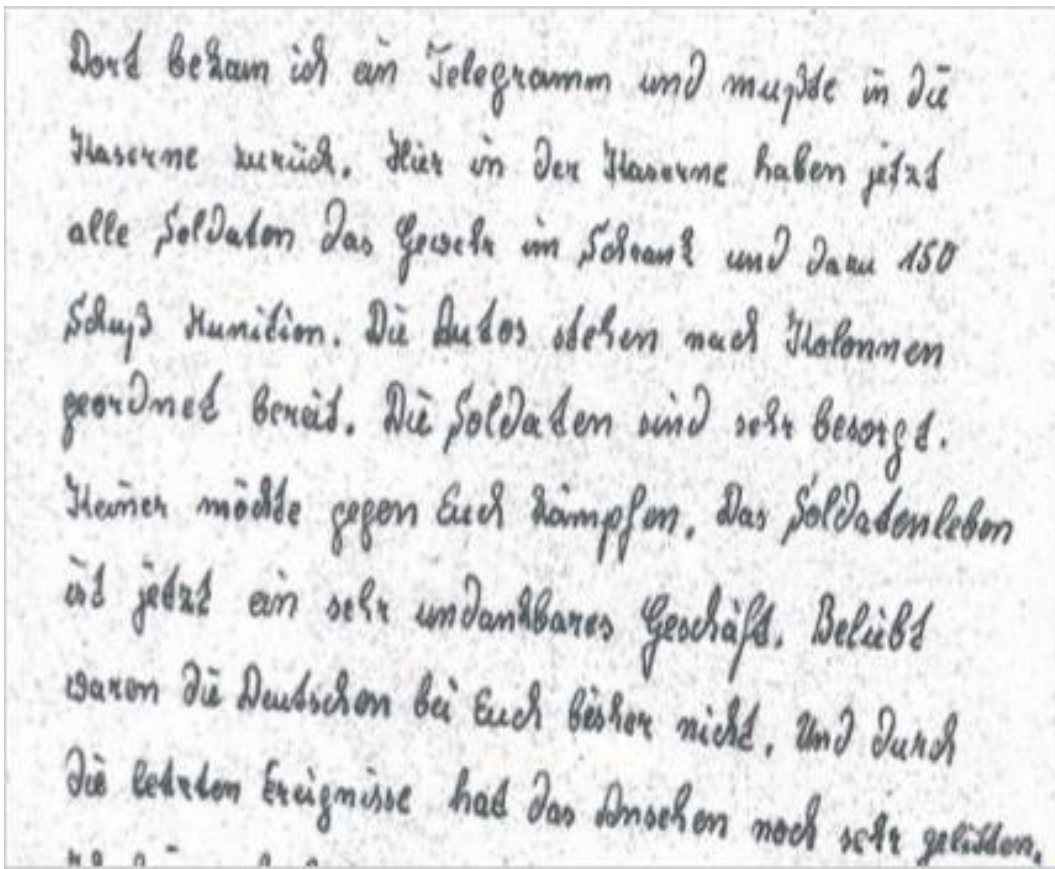 Dort bekam ich ein Telegramm und mußte in die
Kaserne zurück. Hier in der Kaserne haben jetzt
alle Soldaten das Gewehr im Schrank und dazu 150
Schuß Munition. Die Autos stehen nach Kolonnen
geordnet bereit. Die Soldaten sind sehr besorgt.
Keiner möchte gegen Euch kämpfen. Das Soldatenleben
ist jetzt ein sehr undankbares Geschäft. Beliebt
waren die Deutschen bei Euch bisher nicht. Und durch
die letzten Ereignisse hat das Ansehen noch sehr gelitten.